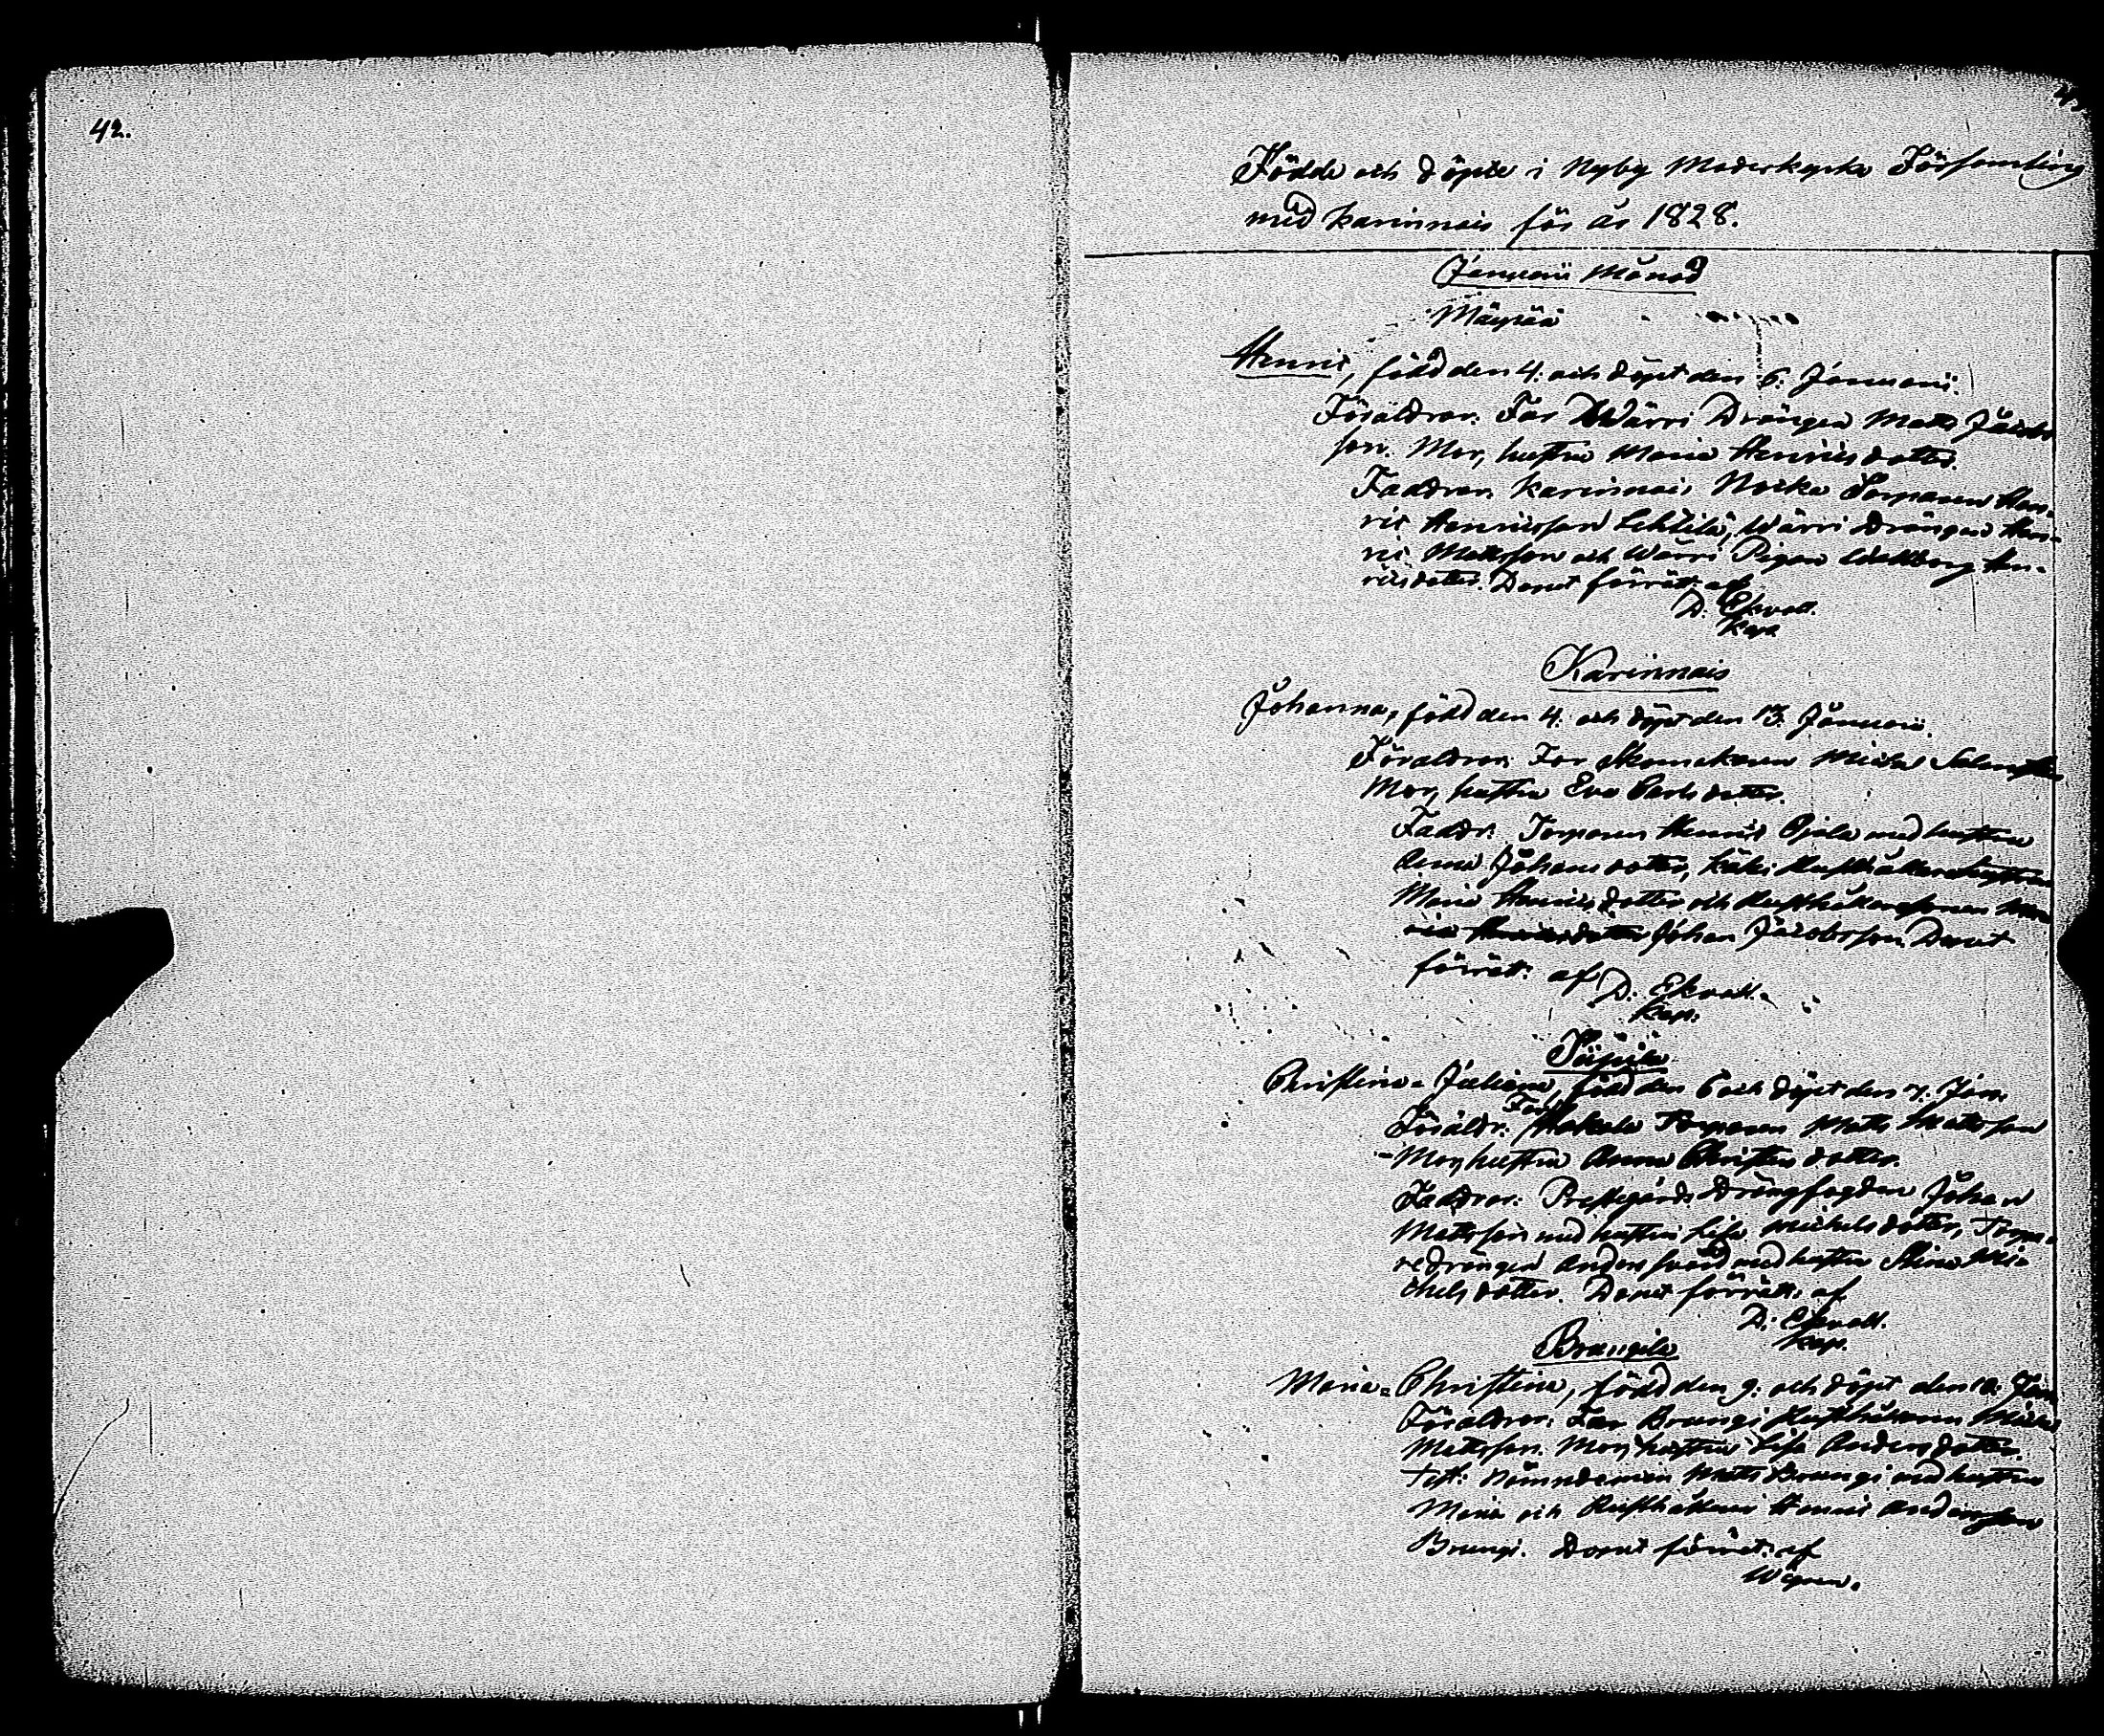 42.
Födde och döpte i Nyby Moderkyrko Församling
med Karinnais för år 1828.
Januarii Månad
Mäypää
Henric, född den 4. och döpt den 6. Januarii.
Föräldrar. Far Wärri Drängen Matts Jacobs
son. Mor, hustru Maria Henricsdotter.
Faddrar. Karinnais Torparen Hen-
ric Henricsson Lehtilä, Wärri Drängen Hen-
ric Mattsson och Wärri Pigan Walborg Hen-
ricsdotter. Dopet förrät: af
D. Ekvall.
Kap.
Karinnais
Johanna, född den 4. och döpt den 13. Januarii.
Föräldrar. Far Skomakaren Michel
Mor, hustru Eva Carlsdotter.
Faddr. Torparen Henric Ojala med hustru
Anna Johansdotter, Rusthållarehustrun
Maria Henricsdotter och Rusthållaresonen
Johan Jacobsson. Dopet
förrät: af
D. Ekvall.
Kap.
Christina-Juliana, född den 6 och döpt den 7. Jan.
Föräldr. Far Torparen Matts Mattsson
Mor, hustru Anna Christersdotter.
Faddrar: Prestgårds Drängfogden Johan
Mattsson med hustru Lisa Michelsdotter, Torpa-
redrängen Anders Svärd med hustru Stina Mi-
chelsdotter. Dopet förrätt: af
D. Ekvall.
Kap.
Brangila
Maria-Christina, född den 9. och döpt den 10. Jan
Föräldrar: Far Brungi Rusthållaren Michel
Mattsson. Mor, hustru Lisa Andersdotter.
Test: Nämndeman Matts Brungi med hustru
Maria och Rusthållaren Henric Andersson
Brungi. Dopet förrät: af